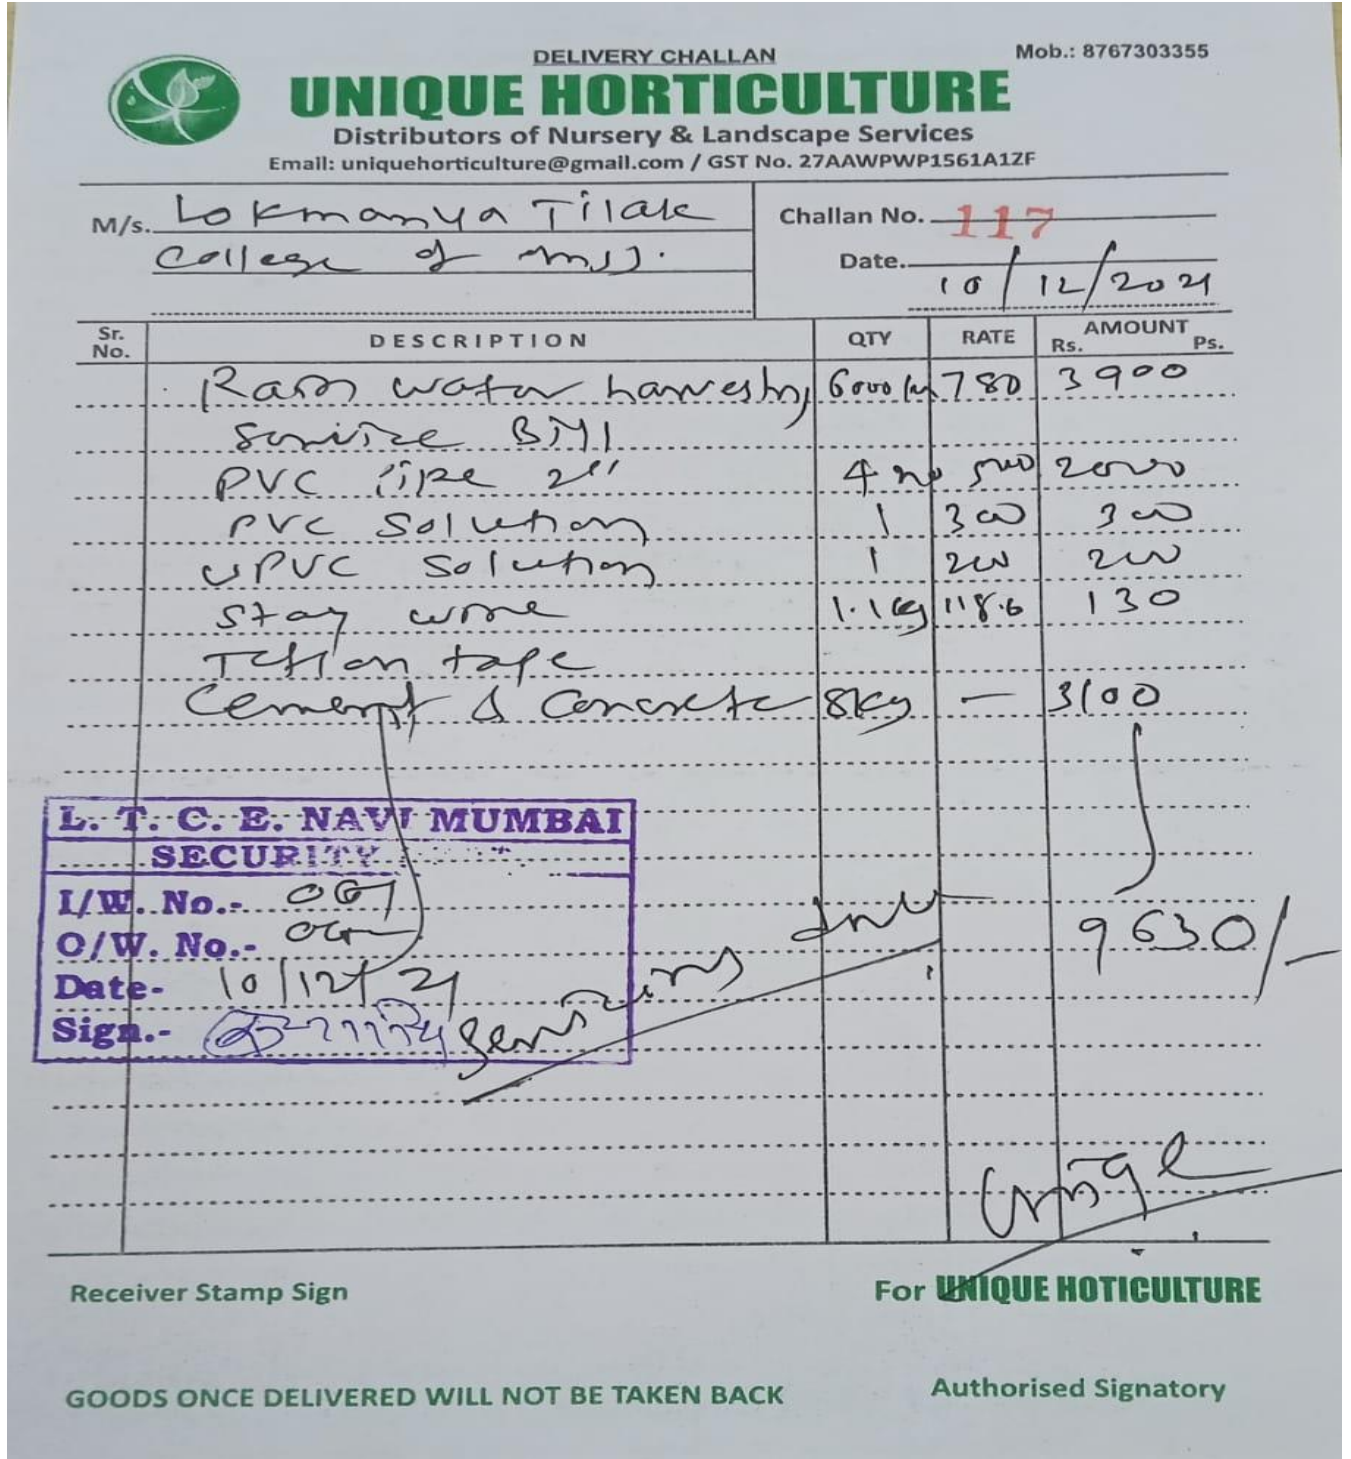 DELIVERY CHALLAN
Mob.: 8767303355
UNIQUE HORTICULTURE
Distributors of Nursery & Landscape Services
Email: uniquehorticulture@gmail.com / GST No. 27AAWPWP1561A1ZF
M/s. Lokmanya Tilak
College of
Challan No. 117
Date. 10/12/2021
Sr. No. DESCRIPTION QTY RATE AMOUNT Rs. Ps.
Rain water harvesting 6000 780 3900
PVC 2" 4 no 500 2000
PVC Solution 1 300 300
UPVC Solution 1 200 200
Stay wire 1.1kg 118.6 130
Teflon tape
Cement & Concrete 8kg — 3100
9630/-
L. T. C. E. NAVI MUMBAI
SECURITY
I/W. No.-
O/W. No.-
Date- 10/12/21
Sign.-
Receiver Stamp Sign
For UNIQUE HOTICULTURE
GOODS ONCE DELIVERED WILL NOT BE TAKEN BACK
Authorised Signatory